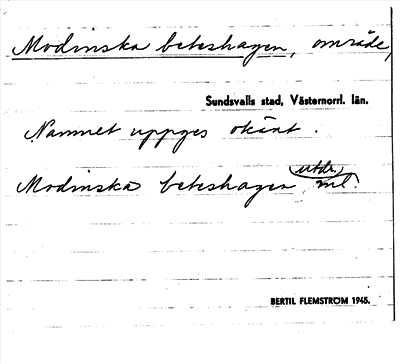 Modinska beteshagen, område,
Sundsvalls stad, Västernorrl. län.
Namnet uppges okänt.
utdr.
Modinska beteshagen, ml.
BERTIL FLEMSTRÖM 1945.